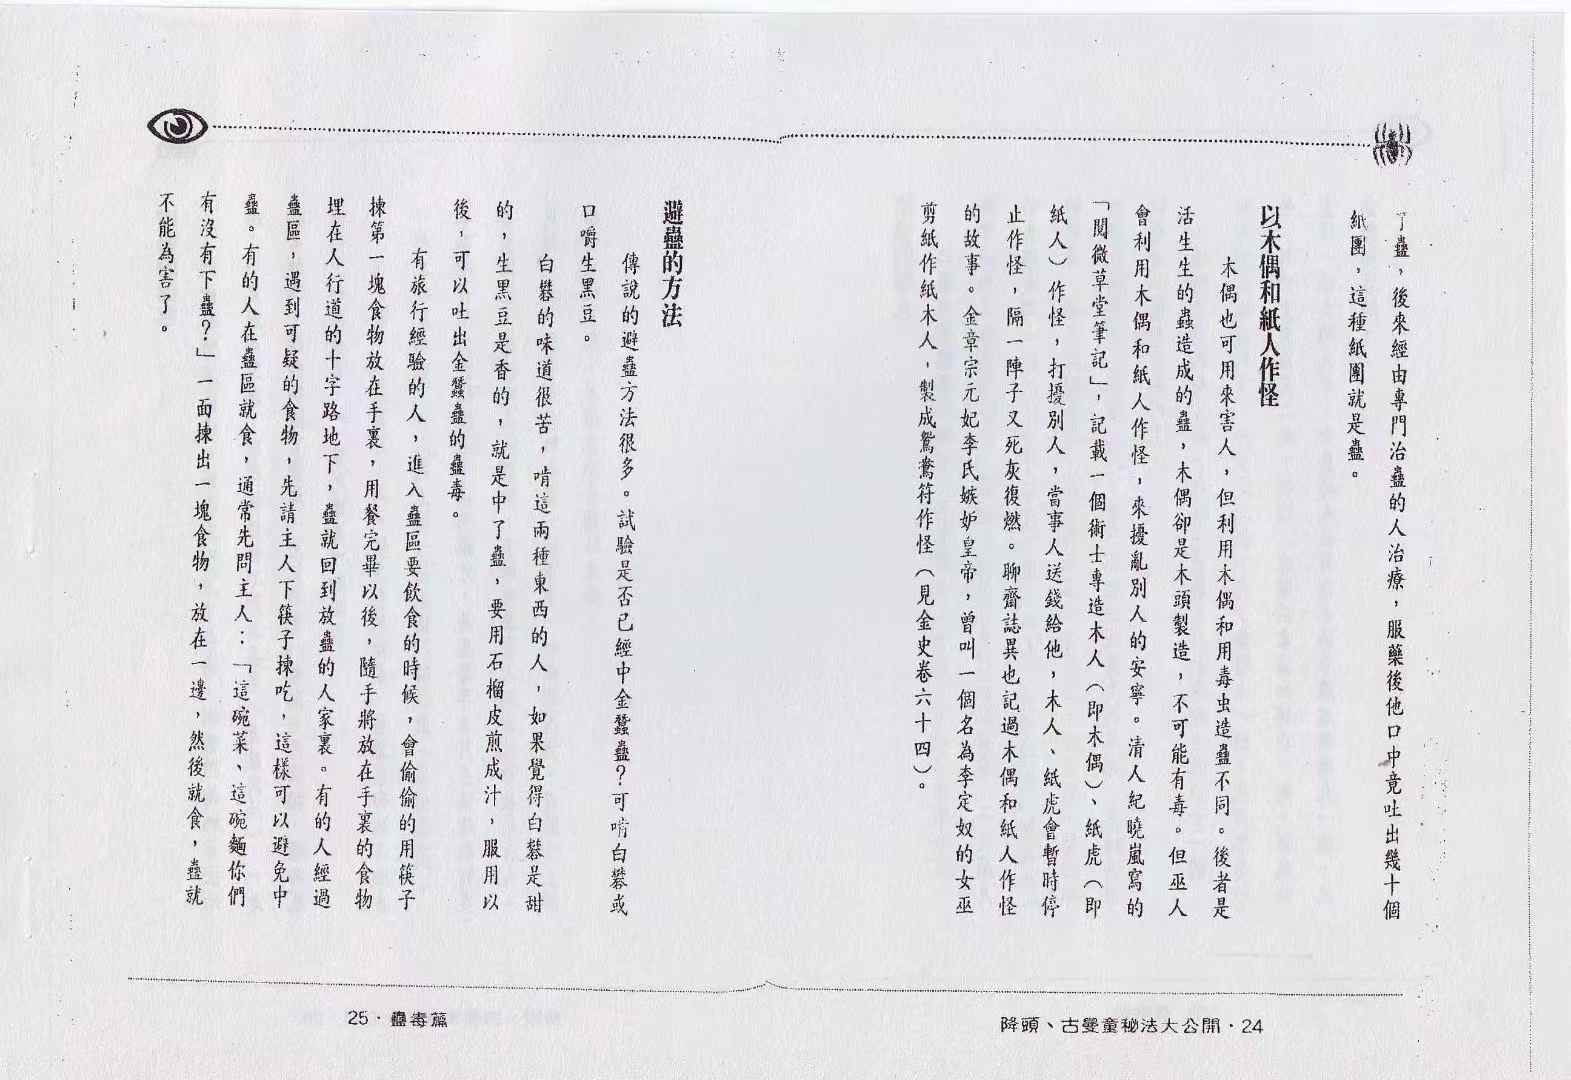 了蠱，後來經由專門治蠱的人治療，服藥後他口中竟吐出幾十個
紙團，這種紙團就是蠱。
以木偶和紙人作怪
木偶也可用來害人，但利用木偶和用毒虫造蠱不同。後者是
活生生的蟲造成的蠱，木偶卻是木頭製造，不可能有毒。但巫人
會利用木偶和紙人作怪，來擾亂別人的安寧。清人紀曉嵐寫的
「閱微草堂筆記」，記載一個術士專造木人（即木偶）、紙虎（即
紙人）作怪，打擾別人，當事人送錢給他，木人、紙虎會暫時停
止作怪，隔一陣子又死灰復燃。聊齋誌異也記過木偶和紙人作怪
的故事。金章宗元妃李氏嫉妒皇帝，曾叫一個名為李定奴的女巫
剪紙作紙木人，製成鴛鴦符作怪（見金史卷六十四）。
降頭、古曼童秘法大公開·24
避蠱的方法
傳說的避蠱方法很多。試驗是否已經中金蠶蠱？可啃白礬或
口嚼生黑豆。
白礬的味道很苦，啃這兩種東西的人，如果覺得白礬是甜
的，生黑豆是香的，就是中了蠱，要用石榴皮煎成汁，服用以
後，可以吐出金蠶蠱的蠱毒。
有旅行經驗的人，進入蠱區要飲食的時候，會偷偷的用筷子
揀第一塊食物放在手裏，用餐完畢以後，隨手將放在手裏的食物
埋在人行道的十字路地下，蠱就回到放蠱的人家裏。有的人經過
蠱區，遇到可疑的食物，先請主人下筷子揀吃，這樣可以避免中
蠱。有的人在蠱區就食，通常先問主人：「這碗菜、這碗麵你們
有沒有下蠱？」一面揀出一塊食物，放在一邊，然後就食，蠱就
不能為害了。
25·蠱毒篇